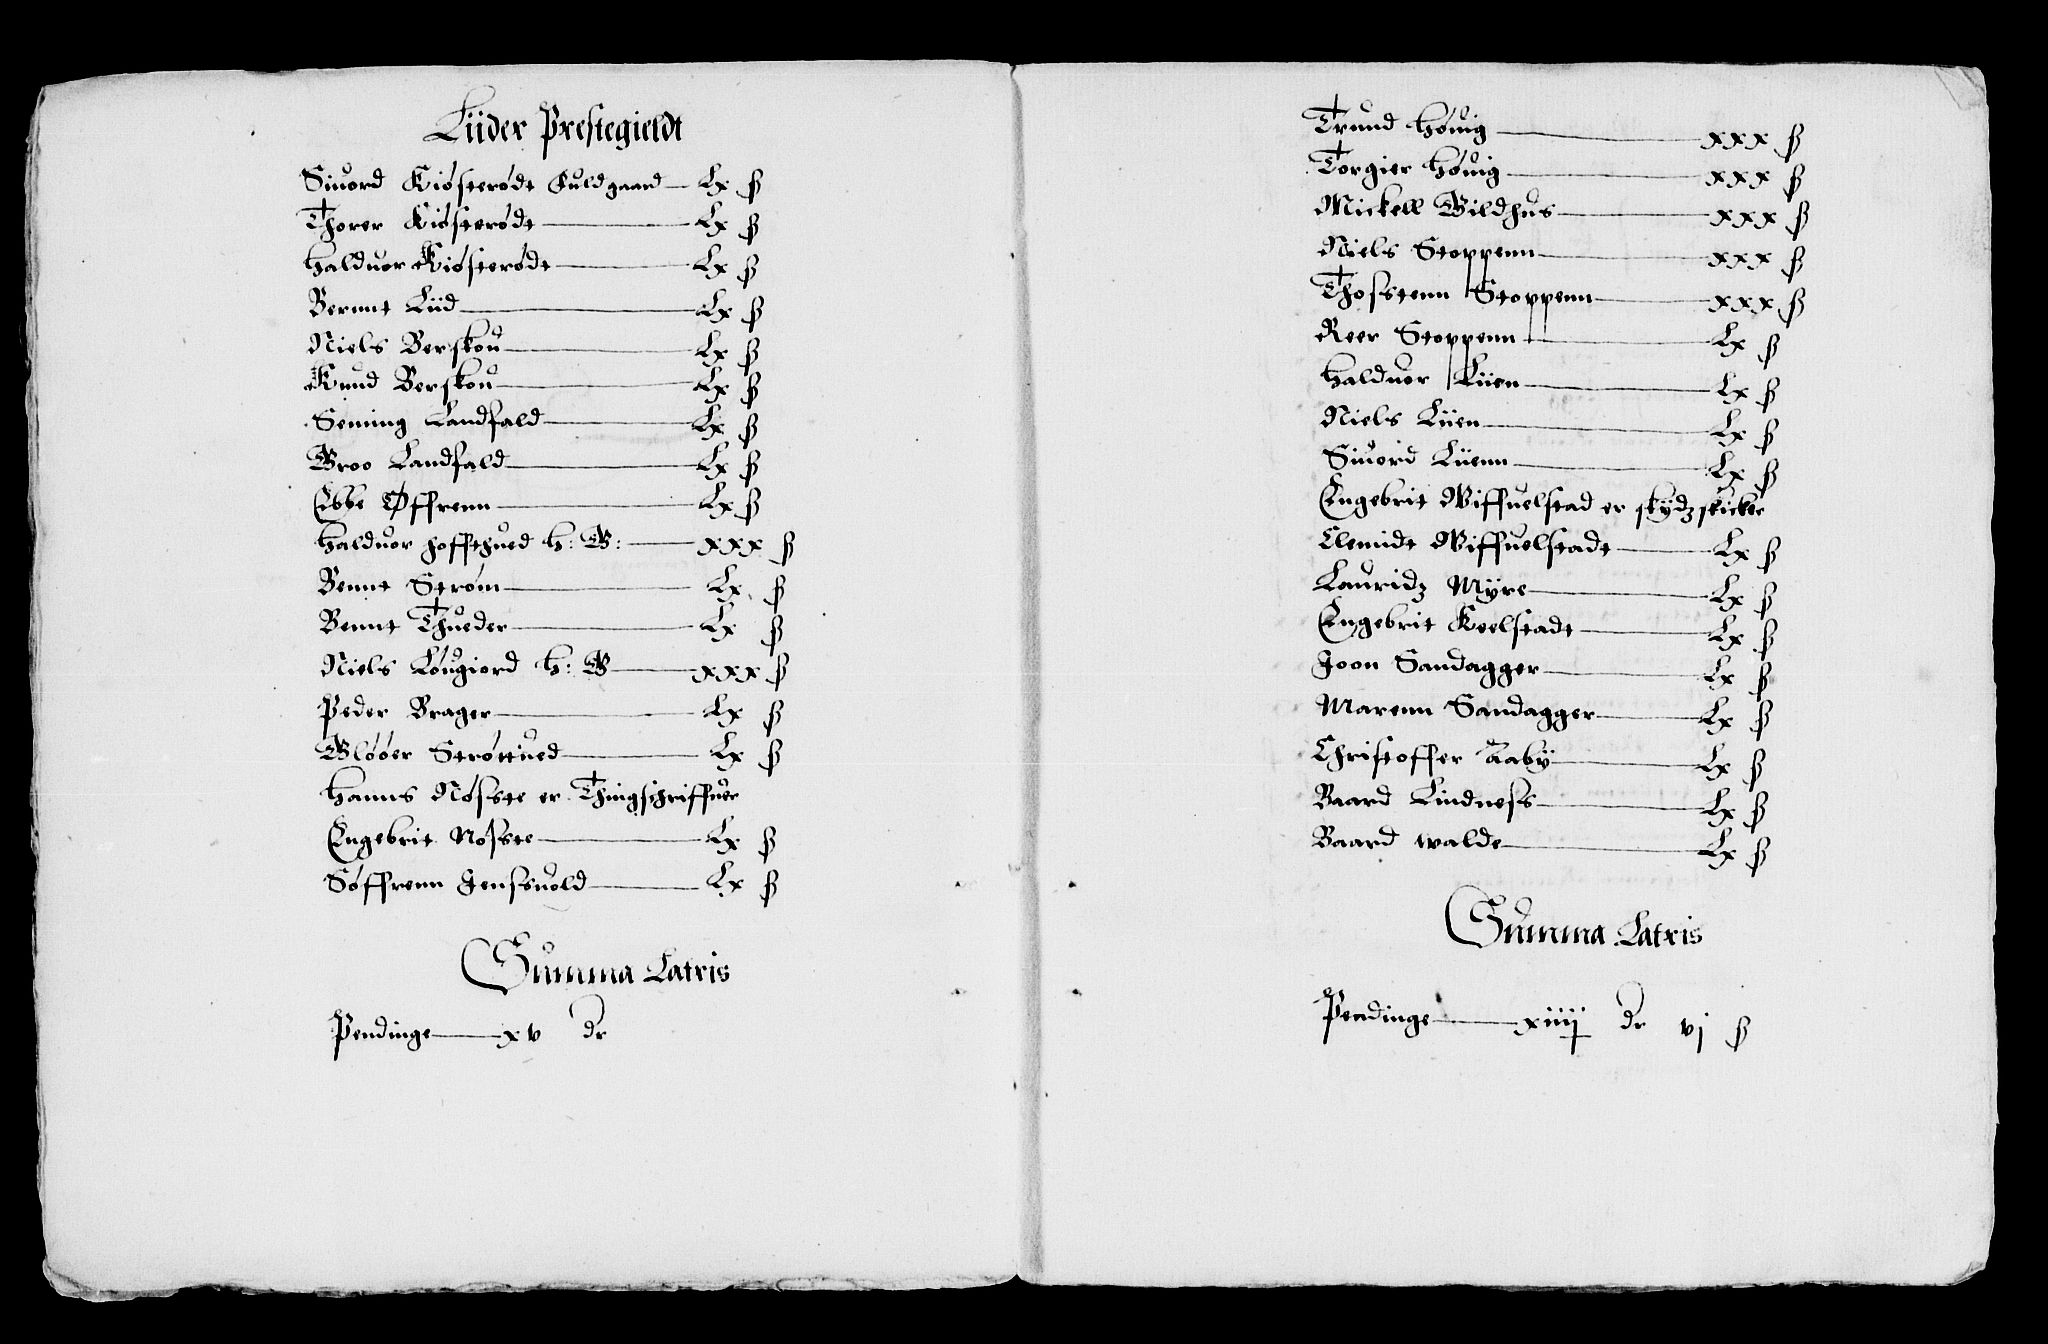 Liider Prestegieldt
Siuord Kiøsterødt Fuldgaard — Lx ß
Thorer Kiøsterødt — Lx ß
Halduor Kiøsterødt — Lx ß
Bernnt Liid — Lx ß
Niels Berskou — Lx ß
Knud Berskou — Lx ß
Seming Landfald — Lx ß
Broo Landfald — Lx ß
Ebbe Øffrenn — Lx ß
Halduor Hoffthued h: G: — xxx ß
Bennt Strøm — Lx ß
Bennt Thueder — Lx ß
Niels Lougiord h: G — xxx ß
Peder Brager — Lx ß
Gløoer Strøttued — Lx ß
Hanns Nøste er Thingschriffuer
Engebrit Nøste — Lx ß
Søffrenn Jenssuold — Lx ß
Summa Latris
Pendinge — xv dr
Trund Høuig — xxx ß
Torgier Høuig — xxx ß
Mickell Gildhus — xxx ß
Niels Stoppenn — xxx ß
Thostenn Stoppenn — xxx ß
Reer Stoppenn — Lx ß
Halduor Liien — Lx ß
Niels Liien — Lx ß
Siuord Liienn — Lx ß
Engebrit Wiffuelstad er skydzskickee
Clemidt Wiffuelstadt — Lx ß
Lauridz Mÿre — Lx ß
Engebrit Keelstadt — Lx ß
Joon Sandagger — Lx ß
Marenn Sandagger — Lx ß
Christoffer Aabÿ — Lx ß
Baard Lindness — Lx ß
Baard walde — Lx ß
Summa Latris
Pendinge — xiiij dr vj ß